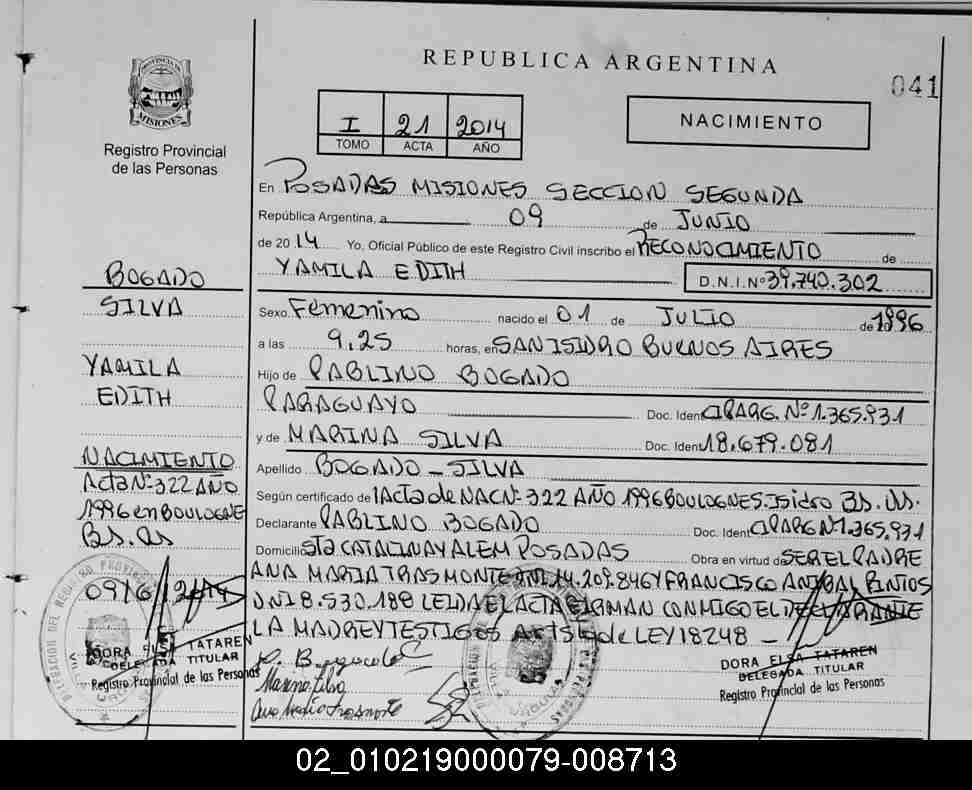 REPUBLICA ARGENTINA
041
PROVINCIA DE
MISIONES
Registro Provincial
de las Personas
I 21 2014
TOMO ACTA AÑO
NACIMIENTO
En POSADAS MISIONES SECCION SEGUNDA
República Argentina, a 09 de JUNIO
de 2014 Yo, Oficial Público de este Registro Civil inscribo el RECONOCIMIENTO de
YAMILA EDITH D.N.I.Nº 39.740.302
Sexo Femenino nacido el 01 de JULIO de 1996
a las 9,25 horas, en SAN ISIDRO BUENOS AIRES
Hijo de PABLINO BOGADO
PARAGUAYO Doc. Iden CIPARG. Nº 1.365.931
y de MARINA SILVA Doc. Iden 18.679.081
Apellido BOGADO - SILVA
Según certificado de 1 Acta de NAC Nº 322 AÑO 1996 BOULOGNE S. Isidro Bs. As.
Declarante PABLINO BOGADO Doc. Ident CIPARG Nº 1.365.931
Domicilio Sta CATALINA Y ALEM POSADAS Obra en virtud de SER EL PADRE
ANA MARIA TRASMONTE DNI 14.209.846 Y FRANCISCO ANIBAL PINTOS
DNI 8.530.188 LEIDA EL ACTA FIRMAN CONMIGO EL DECLARANTE
LA MADRE Y TESTIGOS Arts de LEY 18248 -
BOGADO
SILVA
YAMILA
EDITH
NACIMIENTO
Acta Nº 322 AÑO
1996 en BOULOGNE
Bs. As
09/6/2014
DORA ELSA TATAREN
DELEGADA TITULAR
Registro Provincial de las Personas
Marina Silva
Ana Maria Trasmonte
DORA ELSA TATAREN
DELEGADA TITULAR
Registro Provincial de las Personas
02_010219000079-008713